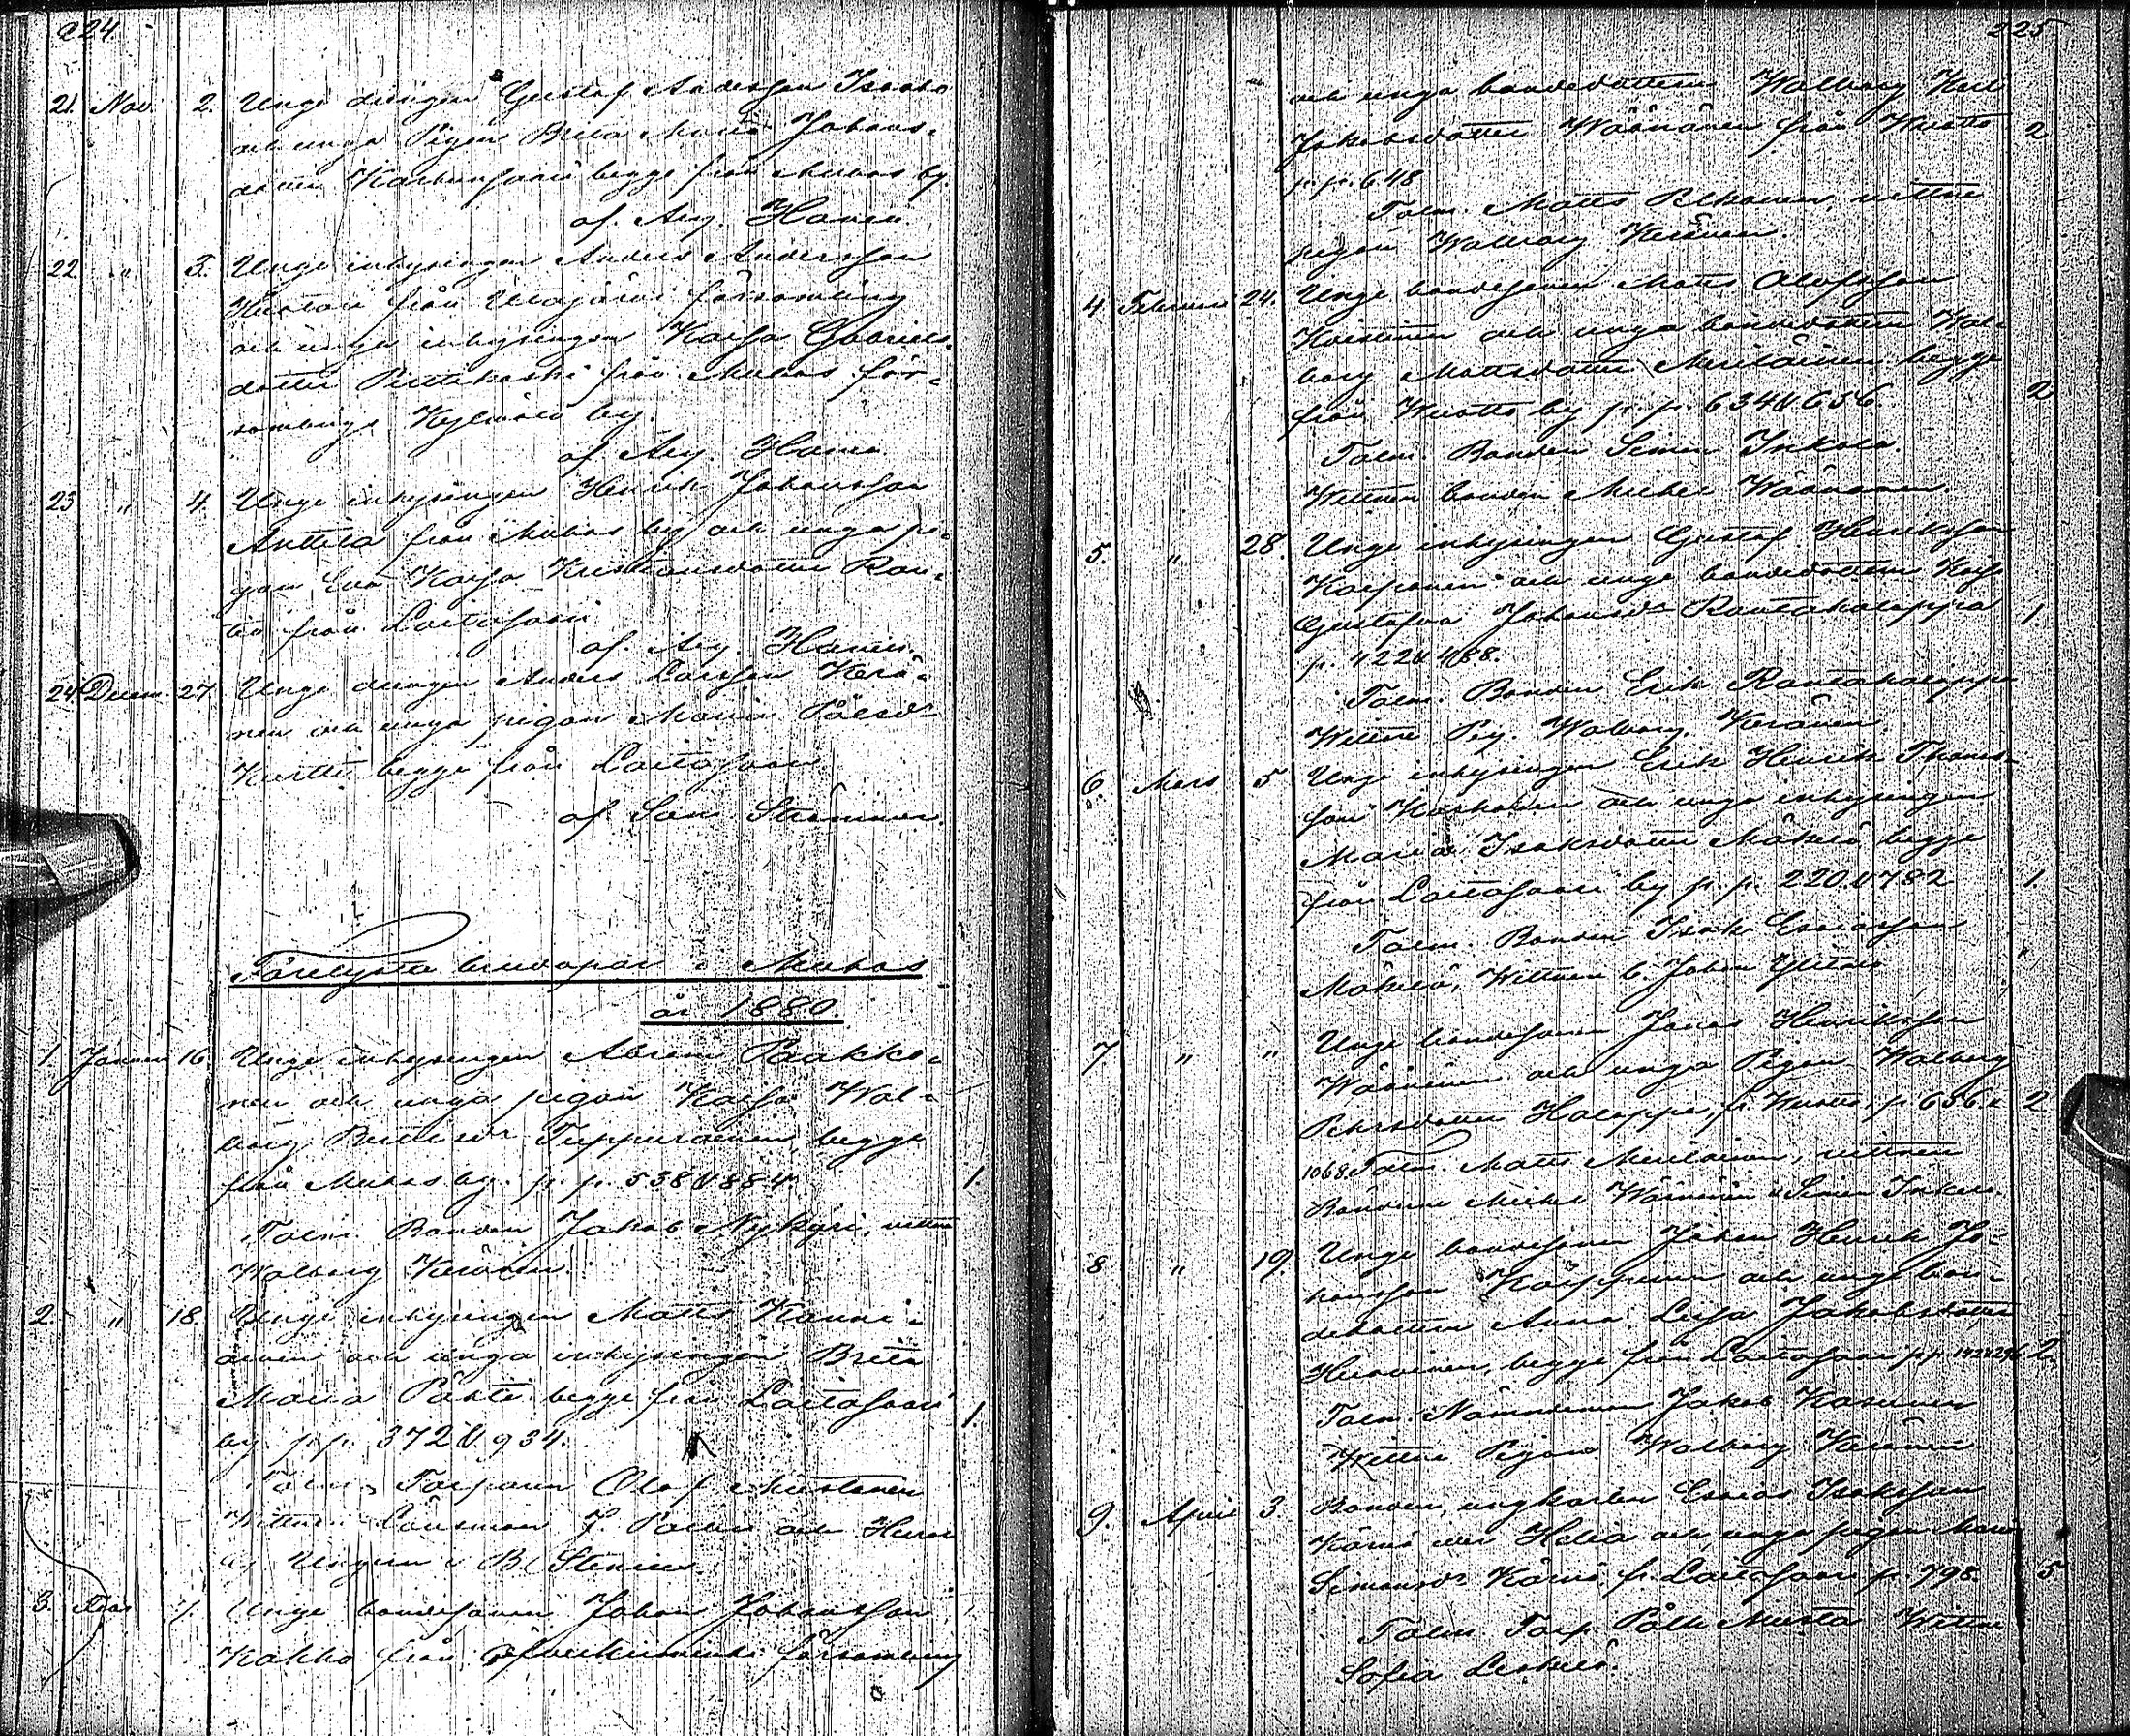 224
21. Nov. 2. Unge drängen Gustaf Andersson Isoaho
och unga Pigan Brita Maria Johans-
dotter Karhunsaari begge från Muhos by.
af Aug. Hanen.
22 " 3. Unge inhysingen Anders Andersson
från Utajärvi församling
och unga inhysingen Kaisa Gabriels-
dotter Pirttikoski från Muhos för-
samlings Kylmälä by.
af Aug. Hanen
23 " 4. Unge inhysingen Henrik Johansson
Anttila från Muhos by och unga pi-
gan Eva Kaisa Kristiansdotter Ran-
ta från Laitasaari
af. Aug. Hanen.
24. Decem. 27 Unge drengen Anders Larsson Kerä-
nen och unga pigan Maria Pålsdr
Kurtti begge från Laitasaari
af Strömmer.
Förelysta brudapar i Muhos
år 1880.
1. Januari 16. Unge inhysingen Abram Paakko-
nen och unga pigan Kaisa Wal-
borg Tuppurainen, begge
från Muhos by. p. p. 538 & 884. 1.
Talm. Bonden Jakob Nykyri, vittne
Walborg Keränen.
2. " 18. Unge inhysingen Matts Kanni-
ainen och unga inhysingen Brita
Maria Pähti begge från Laitasaari
by p. p. 372 & 934. 1.
Talm. Torparen Olof Mustonen
Wittnen Länsman J. och Herr
B. Stenius.
3. 7. Unge bondesonen Johan Johansson
Kokko från Öfverkiminki församling
225.
och unga bondedottren Walborg
Jakobsdotter Wäänänen från Wuotto 2
p. p. 648
Talm. Matts Pelkonen, vittne
pigan Walborg Keränen.
4 Februari 24. Unge bondesonen Matts Olofsson
Koistinen och unga bondedottren Wal-
borg Mattsdotter Meriläinen begge
från Wuotto by p. p. 634 & 656. 2
Talm. Bonden Simon Inkala.
Wittnen bonden Michel Wäänänen.
5. " 28. Unge inhysingen Gustaf Henriksson
Karjonen och unga bondedottren Kaisa
Gustafva Johansdr Rantakaleppa 1.
p. 422 & 488.
Talm. Bonden Erik Rantakaleppa
Wittne Pig. Walborg Keränen
6. Mars 5 Unge inhysingen Erik Henrik Thomas-
son Koskonen och unga inhysingen
Maria Isaksdotter Mäkelä begge
från Laitasaari by p. p. 220. & 782 1.
Talm. Bonden Isak Esaiasson
Mäkelä, Wittnen b. Johan Ylitalo
7. " " Unge bondesonen Jonas Henriksson
Wäänänen och unga Pigan Walborg
Petersdotter Holappa, fr. Wuotto, p. 656. & 2
1068. Talm. Matts Meriläinen, vittnen
Bönderne Michel Wäänänen & Simon Inkala.
8 " 19. Unge bondesonen Johan Henrik Jo-
hansson och unga bon-
dedottren Anna Lisa Jakobsdotter
Huovinen, begge från Laitasaari p. p. 192 & 296 2.
Talm. Nämndeman Jakob Kosunen
Wittne Pigan Walborg Keränen
9. April 3. Bonden, ungkarlen Esaias Isaksson
och unga pigan Maria
Simonsdr Kärnä fr. Laitasaari p. 798. 5
Talm. Torp. Påhl Musta Wittne
Sofia Leskelä.